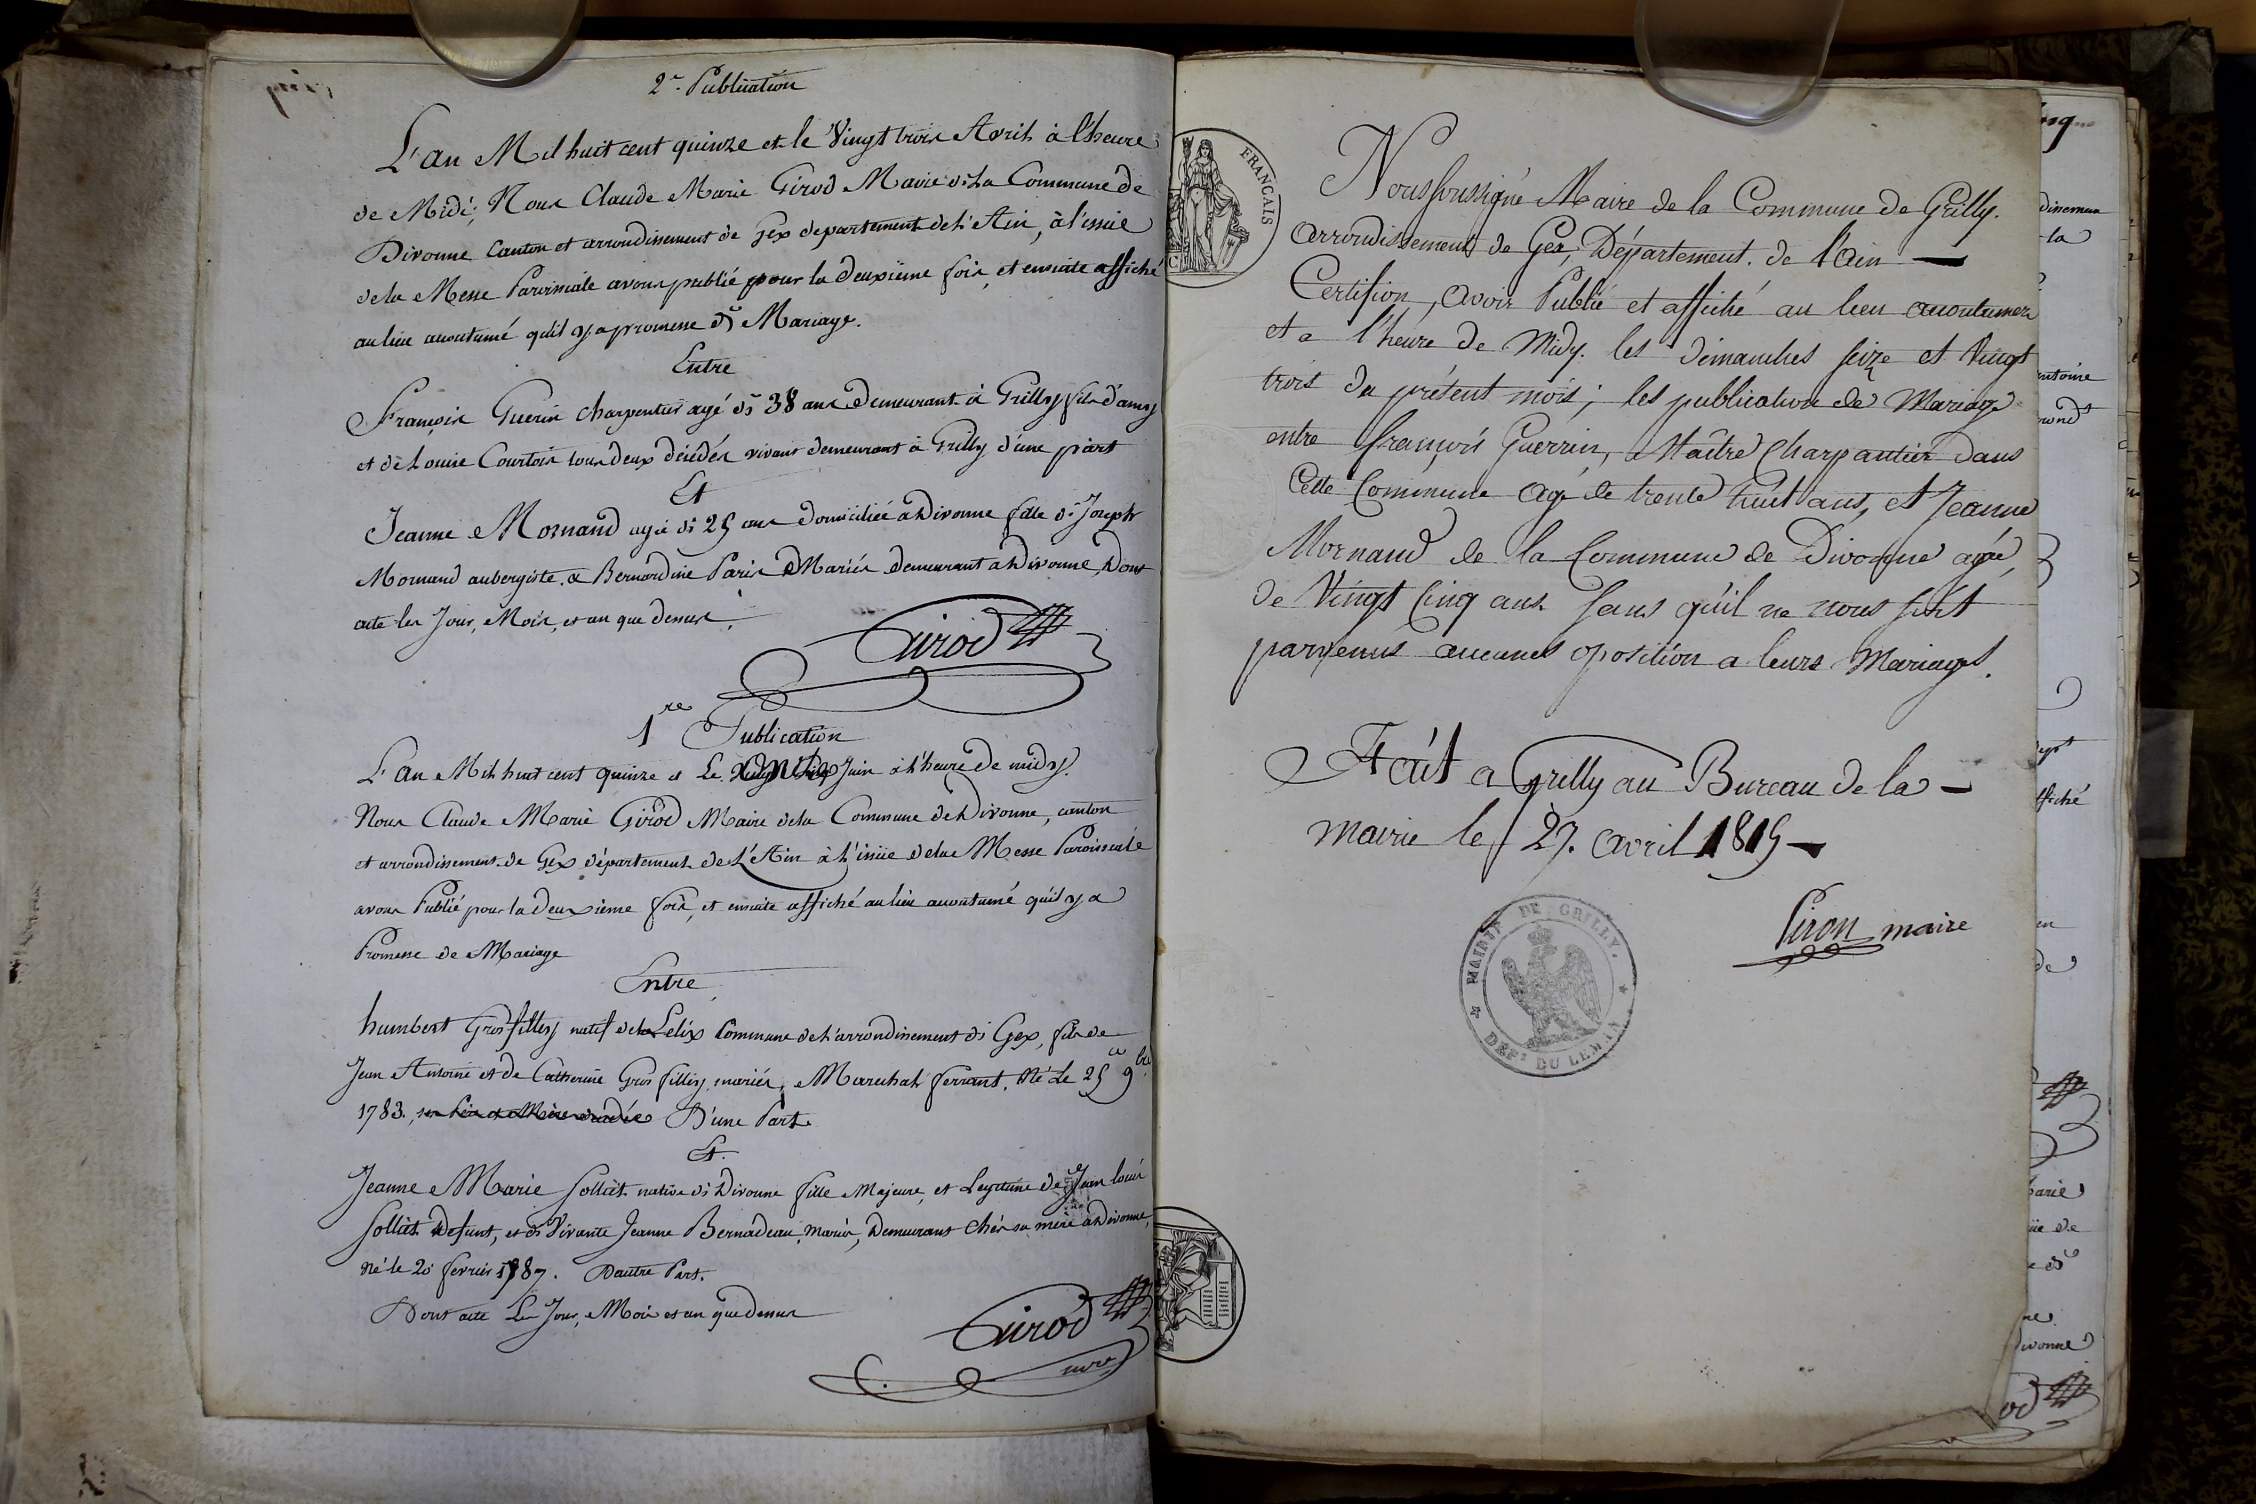 2e. Publication
L'an Mil huit cent quinze et le Vingt trois Avril à l'heure
de Midi; Nous Claude Marie Girod Maire de la Commune de
Divonne Canton et arrondissement de Gex departement de l'Ain, à l'issüe
de la Messe Paroissiale avons publié pour la deuxiëme fois, et ensuite affiché
au lieu acoutumé quil y a promesse de Mariage.
Entre
François Guerin charpentier agé de 38 ans Demeurant à Grilly fils d'amy
et de Louise Courtois tous deux décédés vivant demeurant à Grilly, d'une part
Et
Jeanne Mornand agée de 25 ans Domiciliée à Divonne fille de Joseph
Mornand aubergiste. & Bernardine Paris Mariés Demeurant à Divonne, Dont
acte les Jour, Mois, et an que dessus.
Girod
1re Publication
L'an Mil huit cent quinze et Le Juin à l'heure de midy.
Nous Claude Marie Girod Maire de la Commune de Divonne, canton
et arrondissement de Gex département de L'Ain à l'issüe de la Messe Paroissiale
avons Publié pour la deuxième fois, et ensuite affiché au lieu acoutumé qu'il y a
Promesse de Mariage
Entre
humbert Grosfilley natif de Lelix Commune de l'arrondissement de Gex, fils de
Jean Antoine et de Catherine Gros filley mariés, Marechal ferrant. Né Le 25 9bre
1783. D'une Part.
Et.
Jeanne Marie Solliet native de Divonne fille Majeure, et Legitime de Jean louis
Solliet Defunt, et de Vivante Jeanne Bernadeau, mariés, Demeurant Chés sa mère à Divonne,
Né le 20 fevrier 1787. Dautre Part.
Dont acte Les Jour, Mois et an que dessus
Girod
mre
FRANÇAIS
Nous soussigné Maire de la Commune de Grilly.
arrondissement de Gex, Département. de l'Ain —
Certifion, avoir Publié et affiché au lieu acoutumer
et a l'heure de Midy. les dimanches seize et Vingt
trois du présent mois; les publication de Mariage
entre françois Guerrin, Maître Charpantier dans
Cette Commune agé de trente huit ans, et Jeanne
Mornand de la Commune de Divonne agée,
de Vingt Cinq ans. sans qu'il ne nous soit
parvenus aucunes oposition a leurs Mariages.
Fait a Grilly au Bureau de la —
mairie le 27. avril 1815 —
Piron maire
MAIRIE DE GRILLY.
DEPT DU LEMAN